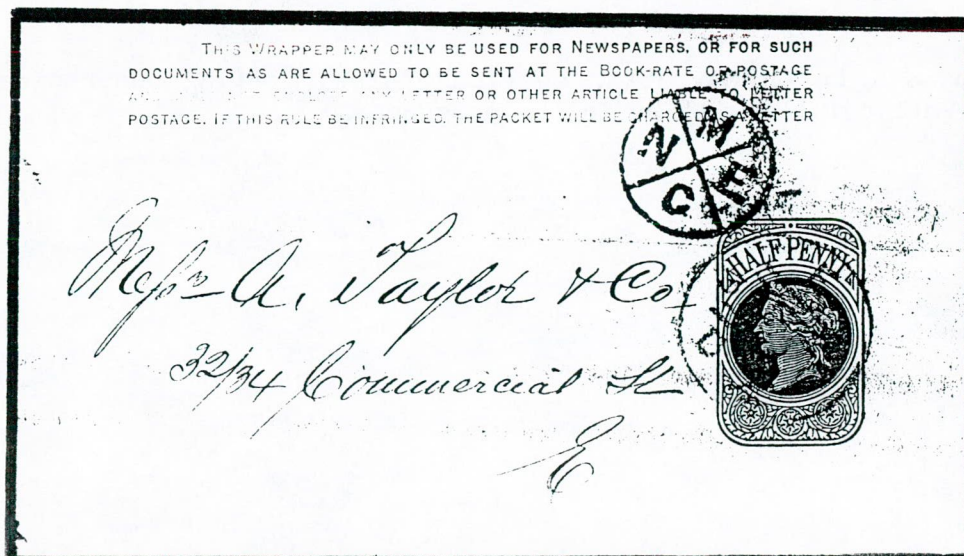 THIS WRAPPER MAY ONLY BE USED FOR NEWSPAPERS, OR FOR SUCH
DOCUMENTS AS ARE ALLOWED TO BE SENT AT THE BOOK-RATE OF POSTAGE
LETTER OR OTHER ARTICLE LIABLE TO LETTER
POSTAGE. IF THIS RULE BE INFRINGED, THE PACKET WILL BE CHARGED AS A LETTER
N M
C E
HALFPENNY
Messrs A. Taylor & Co
32/34 Commercial St
E